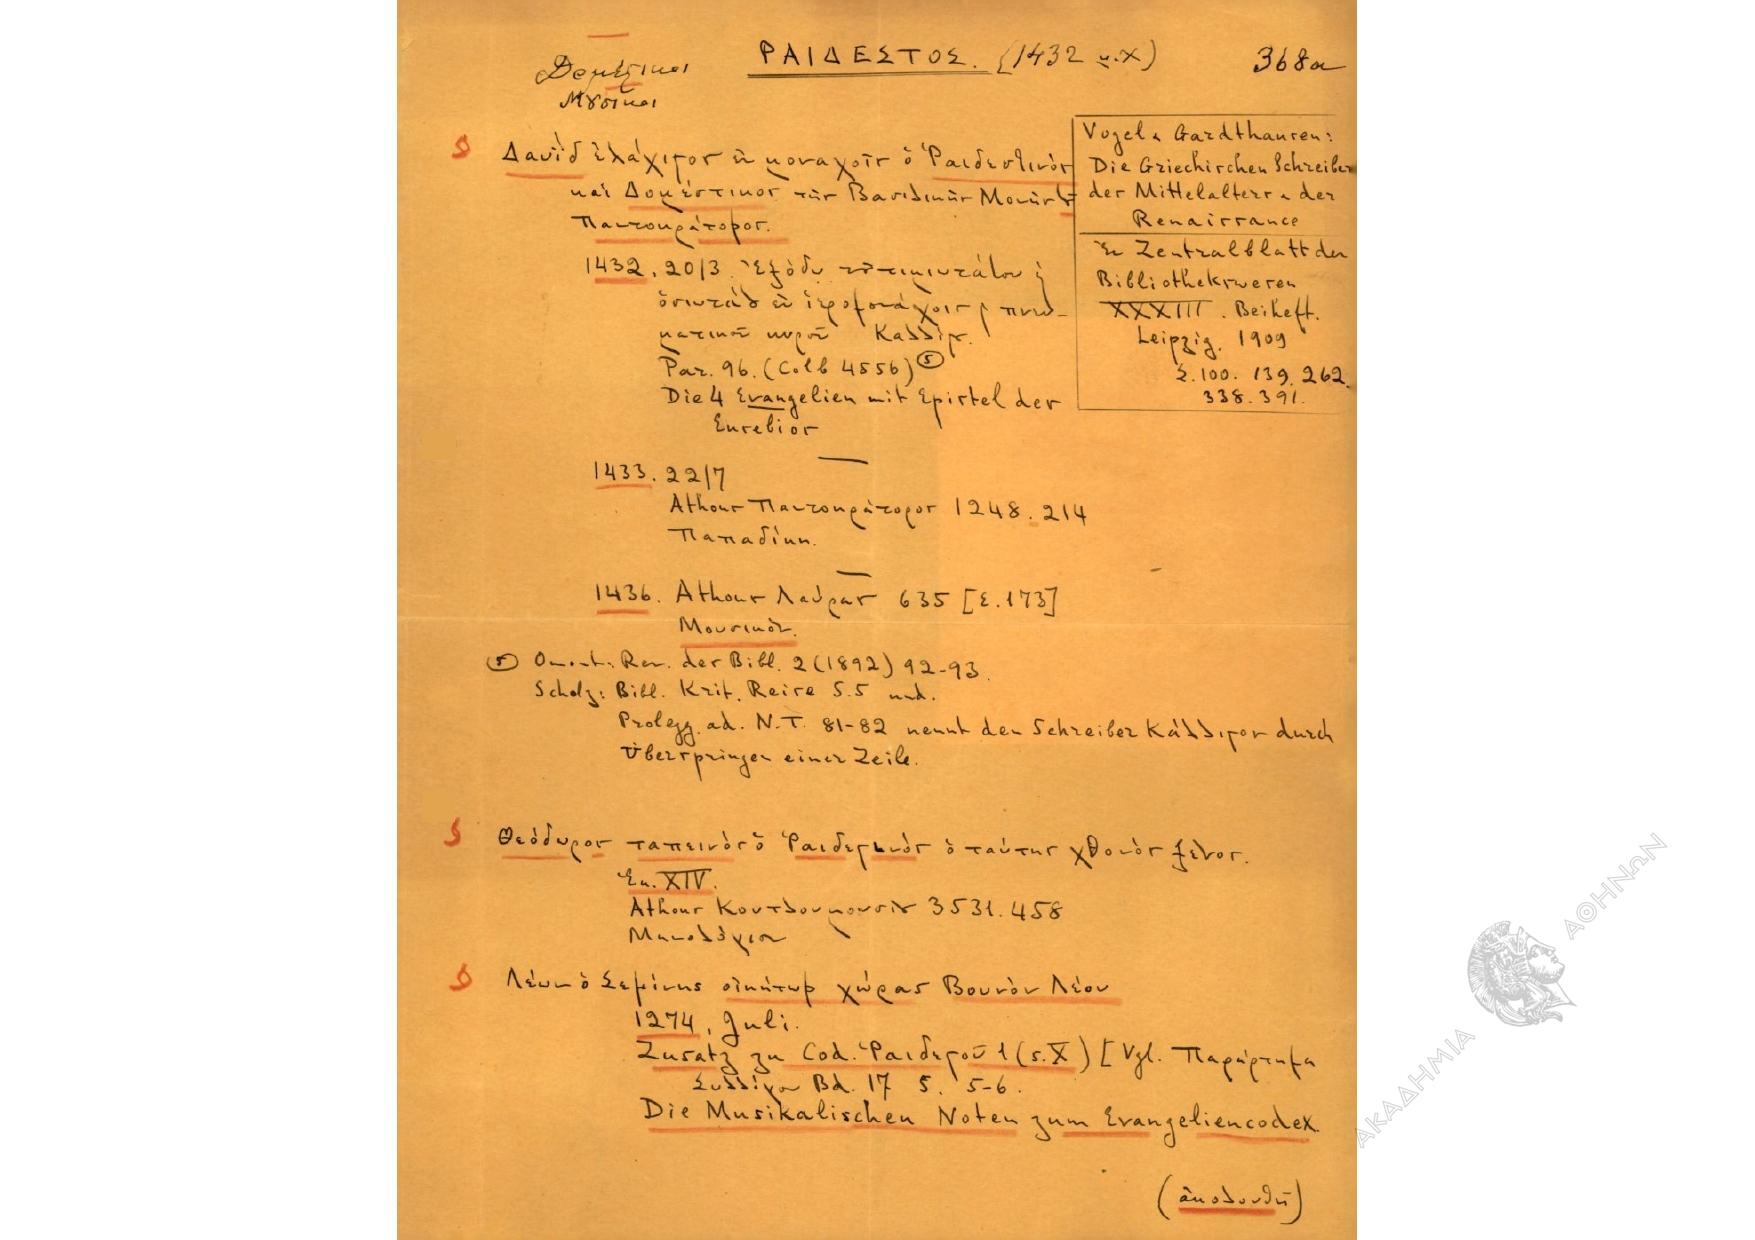 Δομέστικοι
Μουσικοί
ΡΑΙΔΕΣΤΟΣ. (1432 μ.χ)
368α
Δαυῒδ ἐλάχιστος ἐν μοναχοῖς ὁ Ῥαιδεστινὸς
καὶ Δομέστικος τῆς Βασιλικῆς Μονῆς
Παντοκράτορος.
1432, 20/3.
ἐν ἱερομονάχοις
Par. 96. (Colb 4556) ⑤
Die 4 Evangelien mit Epistel des
Eusebios
Vogel & Gardthausen:
Die Griechischen Schreiber
des Mittelalters & der
Renaissance
Ἐν Zentralblatt der
Bibliothekswesen
XXXIII. Beiheft.
Leipzig. 1909
Σ. 100. 139. 262.
338. 391.
1433. 22/7
Athous Παντοκράτορος 1248. 214
Παπαδίκη.
1436. Athous Λαύρας 635 [Σ. 173]
Μουσικὸν.
⑤ Omont: Rev. der Bibl. 2 (1892) 92-93.
Scholz: Bibl. Krit. Reise S. 5 und.
Prolegg. ad. N.T. 81-82 nennt den Schreiber Κάλλιστον durch
Überspringen einer Zeile.
Θεόδωρος ταπεινὸς ὁ Ῥαιδεστινὸς ὁ ταύτης χθονὸς ξένος.
XIV.
Athous Κουτλουμουσίου 3531. 458
Μηνολόγιον
Λέων ὁ Σεμίνης οἰκήτωρ χώρας Βουνὸν Λέον
1274, Juli.
Zusatz zu Cod. Ῥαιδεστοῦ 1 (s. X) [Vgl. Παράρτημα
Συλλόγου Bd. 17 S. 5-6.
Die Musikalischen Noten zum Evangeliencodex.
(ἀκολουθεῖ)
ΑΚΑΔΗΜΙΑ ΑΘΗΝΩΝ